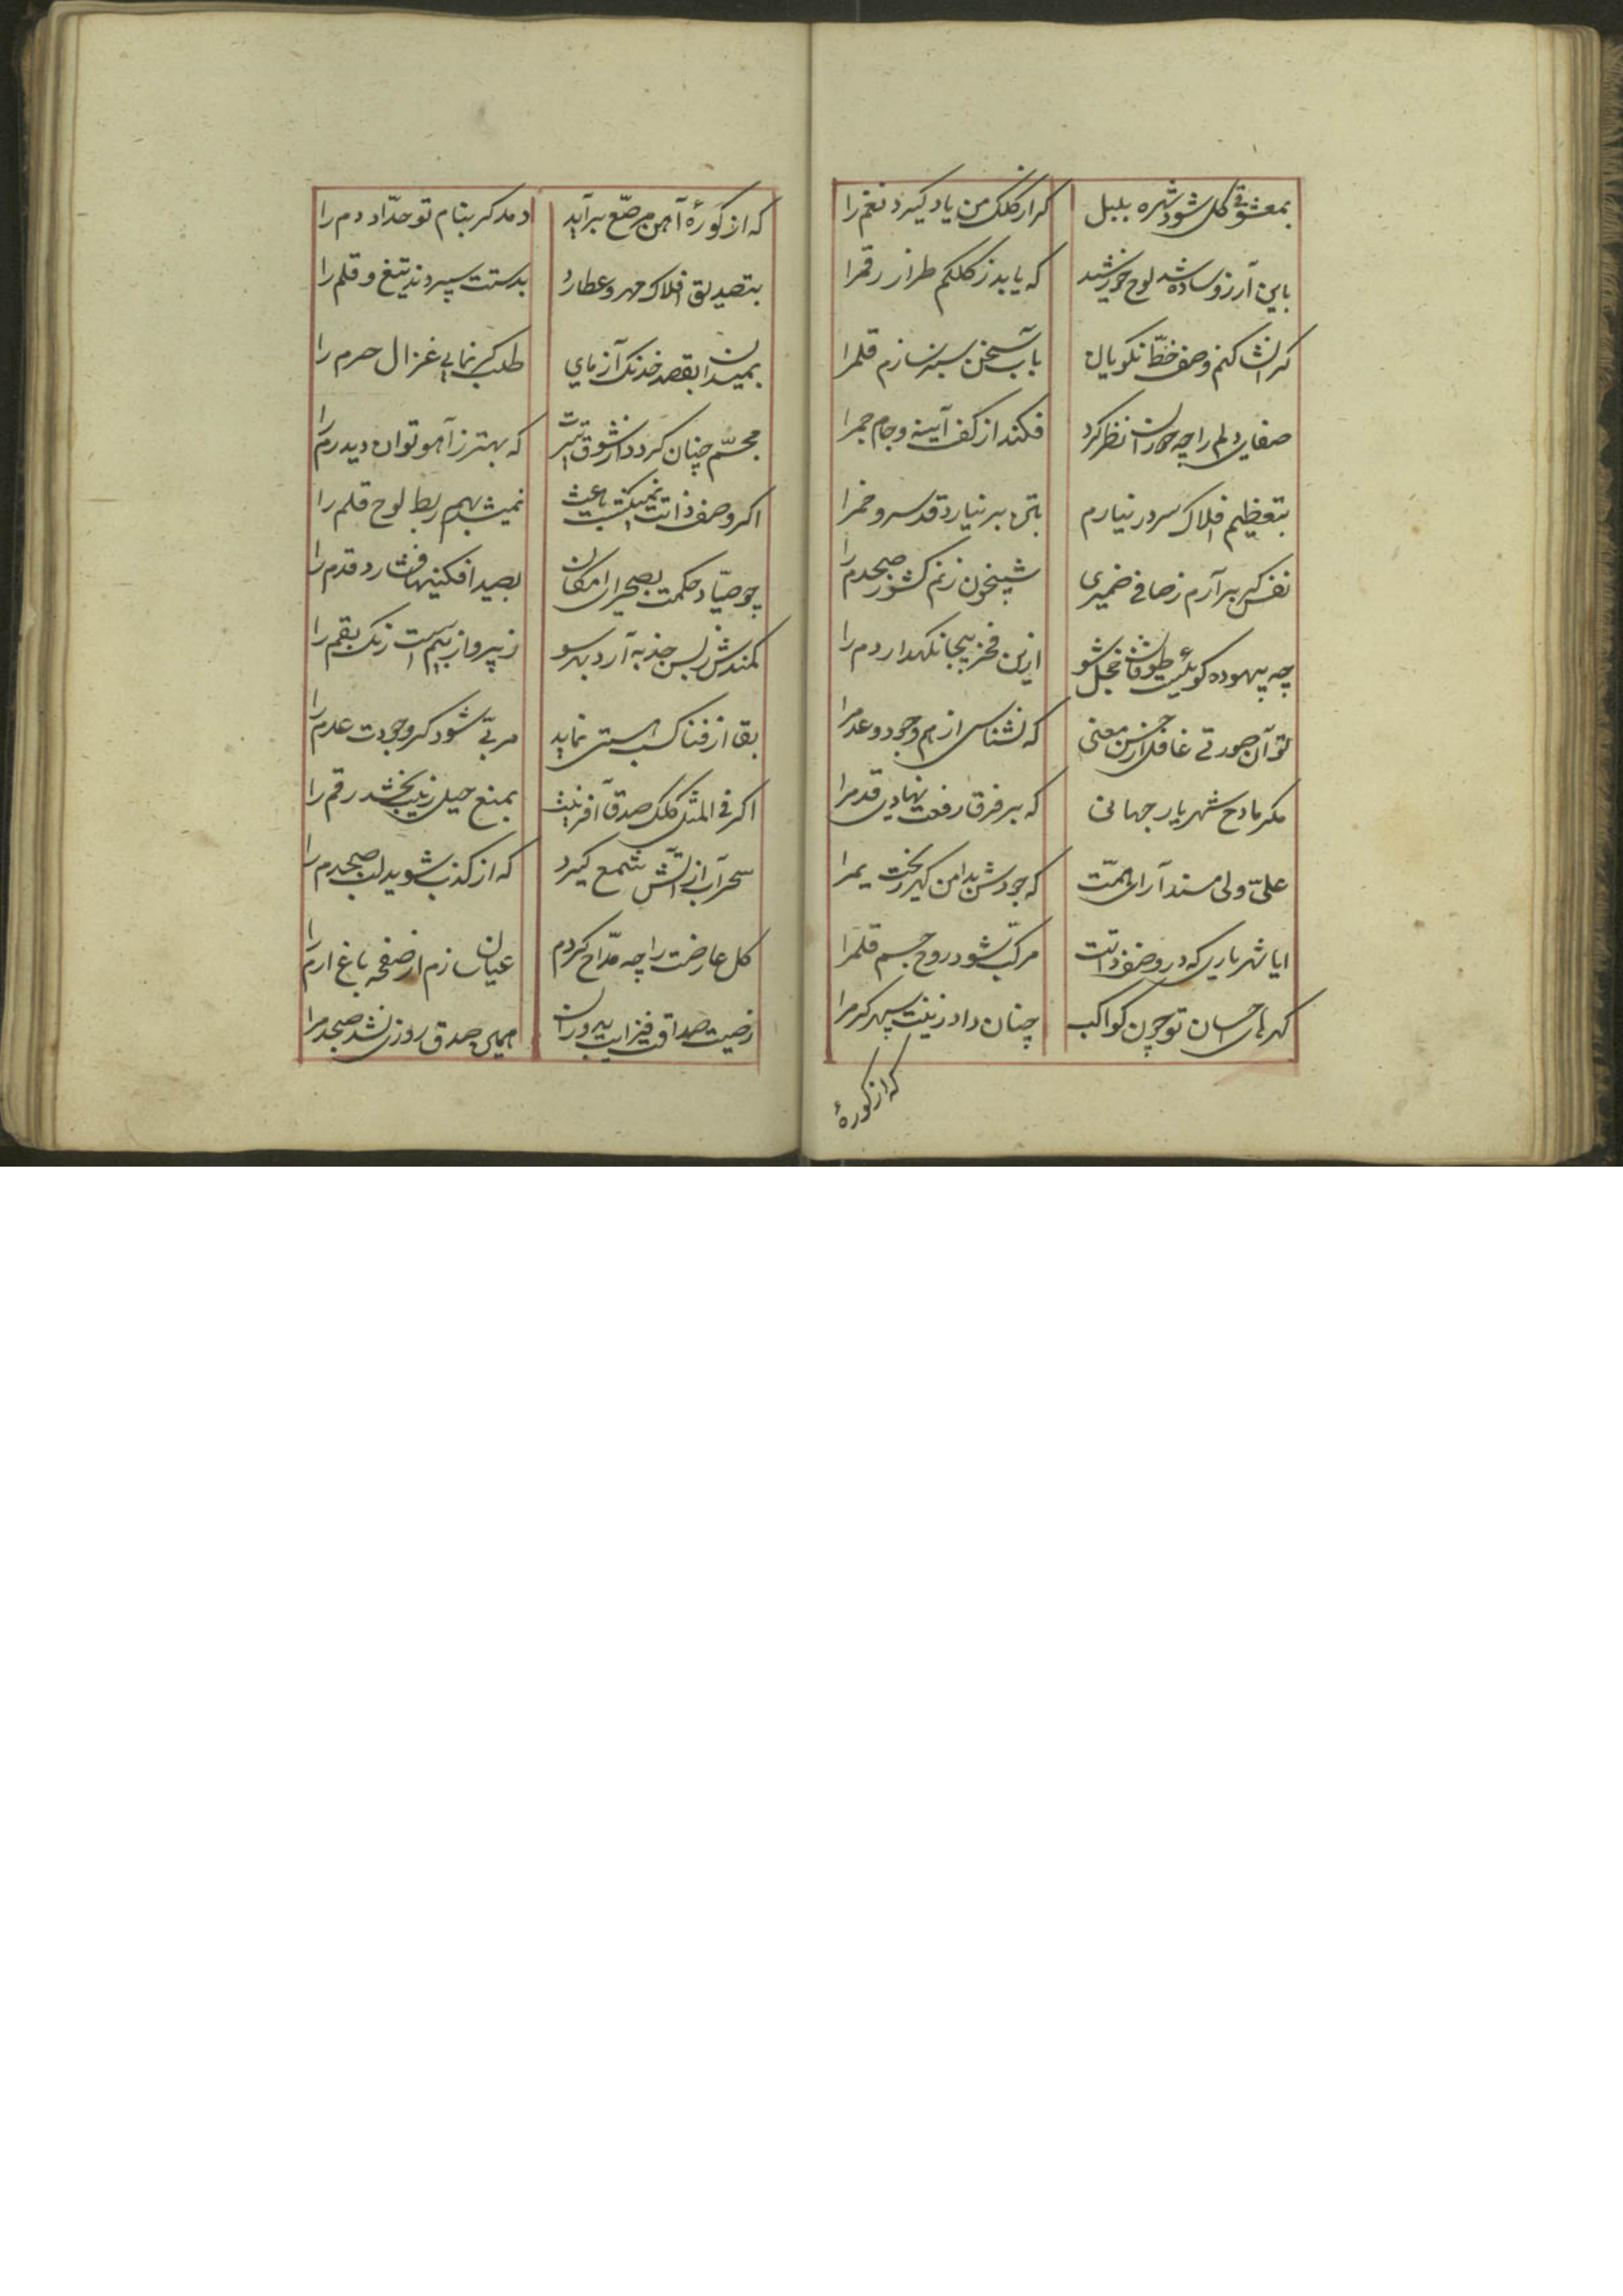 بمعشوقی کل شود شهره بلبل
کر از کلک من یاد کیرد نغم را
باین آرزو ساده شد لوح خورشید
که یابد ز کلکم طراز رقمرا
کر انشا کنم وصف خطّ نکویان
بآب سخن سبز سازم قلمرا
صفای دلم را چه جوزا نظر کرد
فکند از کف آیینه و جام جمرا
بتعظیم افلاک سر در نیارم
بتن بر نیارد قد سرو خمرا
نفس کر برآرم ز صافی ضمیری
شبیخون زنم کشور صبحدم را
چه بیهوده کوئیست طوفان خجل شو
ازین فخر بیجا نکهدار دم را
تو آن صورتی غافل از حسن معنی
که نشناسی از هم وجود و عدمرا
مکر مادح شهریار جهانی
که بر فرق رفعت نهادی قدمرا
علیّ ولی مسند آرای همّت
که جودش بدامن کهر ریخت یمرا
ایا شهریاری که در وصف ذاتت
مرکّب شود روح جسم قلمرا
کهرهای احسان تو چون کواکب
چنان داد زینت سپهر کرمرا
که از کورهٔ
که از کورهٔ آهن مرصّع برآید
دمد کر بنام تو حدّاد دم را
بتصدیق افلاک مهر و عطارد
بدستت سپردند تیغ و قلم را
بمیدان بقصد خدنک آزمای
طلب کر نمایی غزال حرم را
مجسّم چنان کردد از شوق تیرت
که بهتر ز آهو توان دید رم را
اکر وصف ذاتت نمیکشت باعث
نمیشد بهم ربط لوح قلم را
چو صیّاد حکمت بصحرای امکان
بصید افکنیها فشارد قدم را
کمندش ز بس جذبه آرد بهر سو
ز پرواز بیم است رنک بقم را
بقا از فنا کسب هستی نماید
مربّی شود کر وجودت عدم را
اکر فی المثل کلک صدق آفرینت
بمنع حیل زیب بخشد رقم را
سحر آب از آتش شمع کیرد
که از کذب شوید لب صبحدم را
کل عارضت را چه مدّاح کردم
عیان سازم از صفحه باغ ارم را
ز صیت صداقت فزایت بدوران
همین صدق روزی نشد صبحدمرا